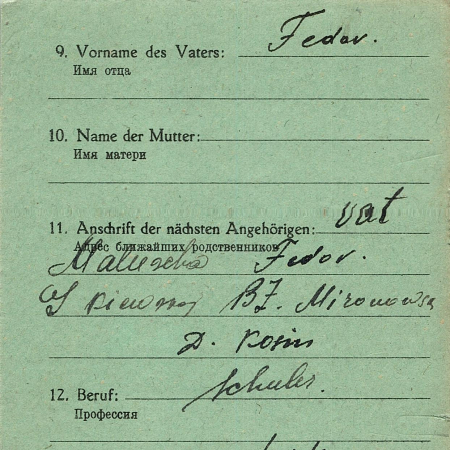 9. Vorname des Vaters: Fedor.
Имя отца
10. Name der Mutter:
Имя матери
11. Anschrift der nächsten Angehörigen: vat
Адрес ближайших родственников
Fedor.
BZ. Mironowsk
D. Kosin
12. Beruf: Schuler.
Профессия